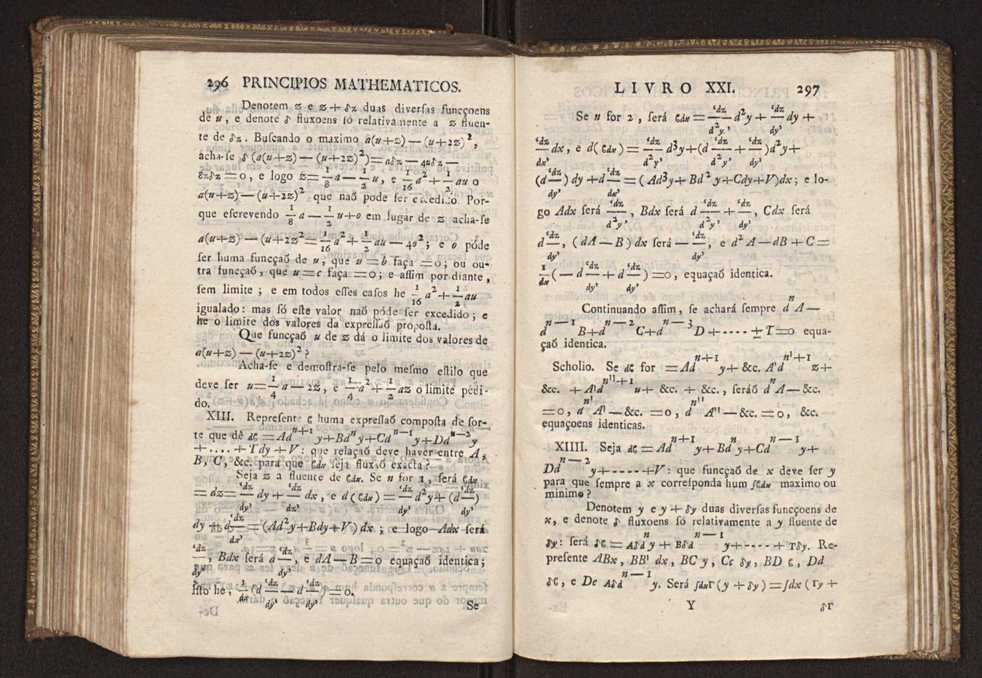 296 PRINCIPIOS MATHEMATICOS.
Denotem z e z + δz duas diversas funcçoens
de u, e denote δ fluxoens só relativamente a z fluen-
te de δz. Buscando o maximo a(u+z) — (u+2z)²,
acha-se δ (a(u+z) — (u+2z)²) = aδz — 4uδz —
8zδz = 0, e logo z = 1/8 a — 1/2 u, e 1/16 a² + 1/2 au o
a(u+z) — (u+2z)² que naõ pode ser excedido. Por-
que escrevendo 1/8 a — 1/2 u + o em lugar de z acha-se
a(u+z) — (u+2z² = 1/16 a² + 1/2 au — 4o²; e o póde
ser huma funcçaõ de u, que u = b faça = 0; ou ou-
tra funcçaõ, que u = c faça = 0; e assim por diante,
sem limite; e em todos esses casos he 1/16 a² + 1/2 au
igualado: mas só este valor naõ póde ser excedido; e
he o limite dos valores da expressaõ proposta.
Que funcçaõ u de z dá o limite dos valores de
a(u+z) — (u+2z)²?
Acha-se e demostra-se pelo mesmo estilo que
deve ser u = 1/4 a — 2z, e 1/4 a² + 1/2 az o limite pedi-
do.
XIII. Represente ϐ huma expressaõ composta de sor-
te que dê dϐ = Ad^{n+1} y + Bd^n y + Cd^{n—1} y + Dd^{n—2} y
+ .... + Tdy + V: que relaçaõ deve haver entre A,
B, C, &c. para que ϐdu seja fluxaõ exacta?
Seja z a fluente de ϐdu. Se n for 1, será ϐdu
= dz = 'dz/dy' dy + 'dz/dx' dx, e d(ϐdu) = 'dz/dy' d²y + (d 'dz/dy')
dy + d 'dz/dx' = (Ad²y + Bdy + V) dx; e logo Adx será
'dz/dy', Bdx será d 'dz/dy', e dA — B = 0 equaçaõ identica;
isto he, 1/dx (d 'dz/dy' — d 'dz/dy') = 0.
Se
LIVRO XXI. 297
Se n for 2, será ϐdu = 'dz/d²y' d²y + 'dz/dy' dy +
'dz/dx' dx, e d(ϐdu) = 'dz/d²y' d³y + (d 'dz/d²y' + 'dz/dy') d²y +
(d 'dz/dy') dy + d 'dz/dx' = (Ad³y + Bd²y + Cdy + V) dx; e lo-
go Adx será 'dz/d²y', Bdx será d 'dz/d²y' + 'dz/dy', Cdx será
d 'dz/dy', (dA — B) dx será — 'dz/dy', e d²A — dB + C =
1/dx (— d 'dz/dy' + d 'dz/dy') = 0, equaçaõ identica.
Continuando assim, se achará sempre d^n A —
d^{n—1} B + d^{n—2} C + d^{n—3} D + ---- ± T = 0 equa-
çaõ identica.
Scholio. Se dϐ for = Ad^{n+1} y + &c. A'd^{n'+1} z +
&c. + A''d^{n''+1} u + &c. + &c., seráõ d^n A — &c.
= 0, d^{n'} A' — &c. = 0, d^{n''} A'' — &c. = 0, &c.
equaçoens identicas.
XIIII. Seja dϐ = Ad^{n+1} y + Bd^n y + Cd^{n—1} y +
Dd^{n—2} y + ----- + V: que funcçaõ de x deve ser y
para que sempre a x corresponda hum ∫ϐdu maximo ou
minimo?
Denotem y e y + δy duas diversas funcçoens de
x, e denote δ fluxoens só relativamente a y fluente de
δy: será δϐ = Aδd^n y + Bδd^{n—1} y + ---- + Tδy. Re-
presente ABx, BB' dx, BC y, Cc δy, BD ϐ, Dd
δϐ, e De Aδd^{n—1} y. Será ∫duΓ (y + δy) = ∫dx (Γy +
Y δΓ